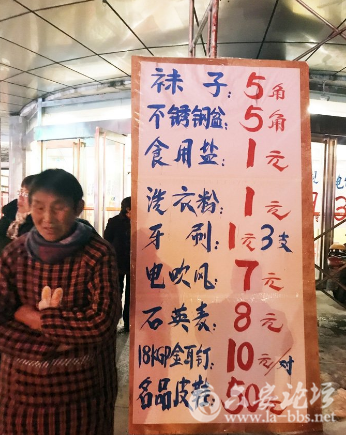 袜子:5角
不锈钢盆:5角
食用盐:1元
洗衣粉:1元
牙刷:1元3支
电吹风:7元
石英表:8元
18KGP金耳钉:10元/对
名品皮鞋:50元
六安论坛
www.la-bbs.net